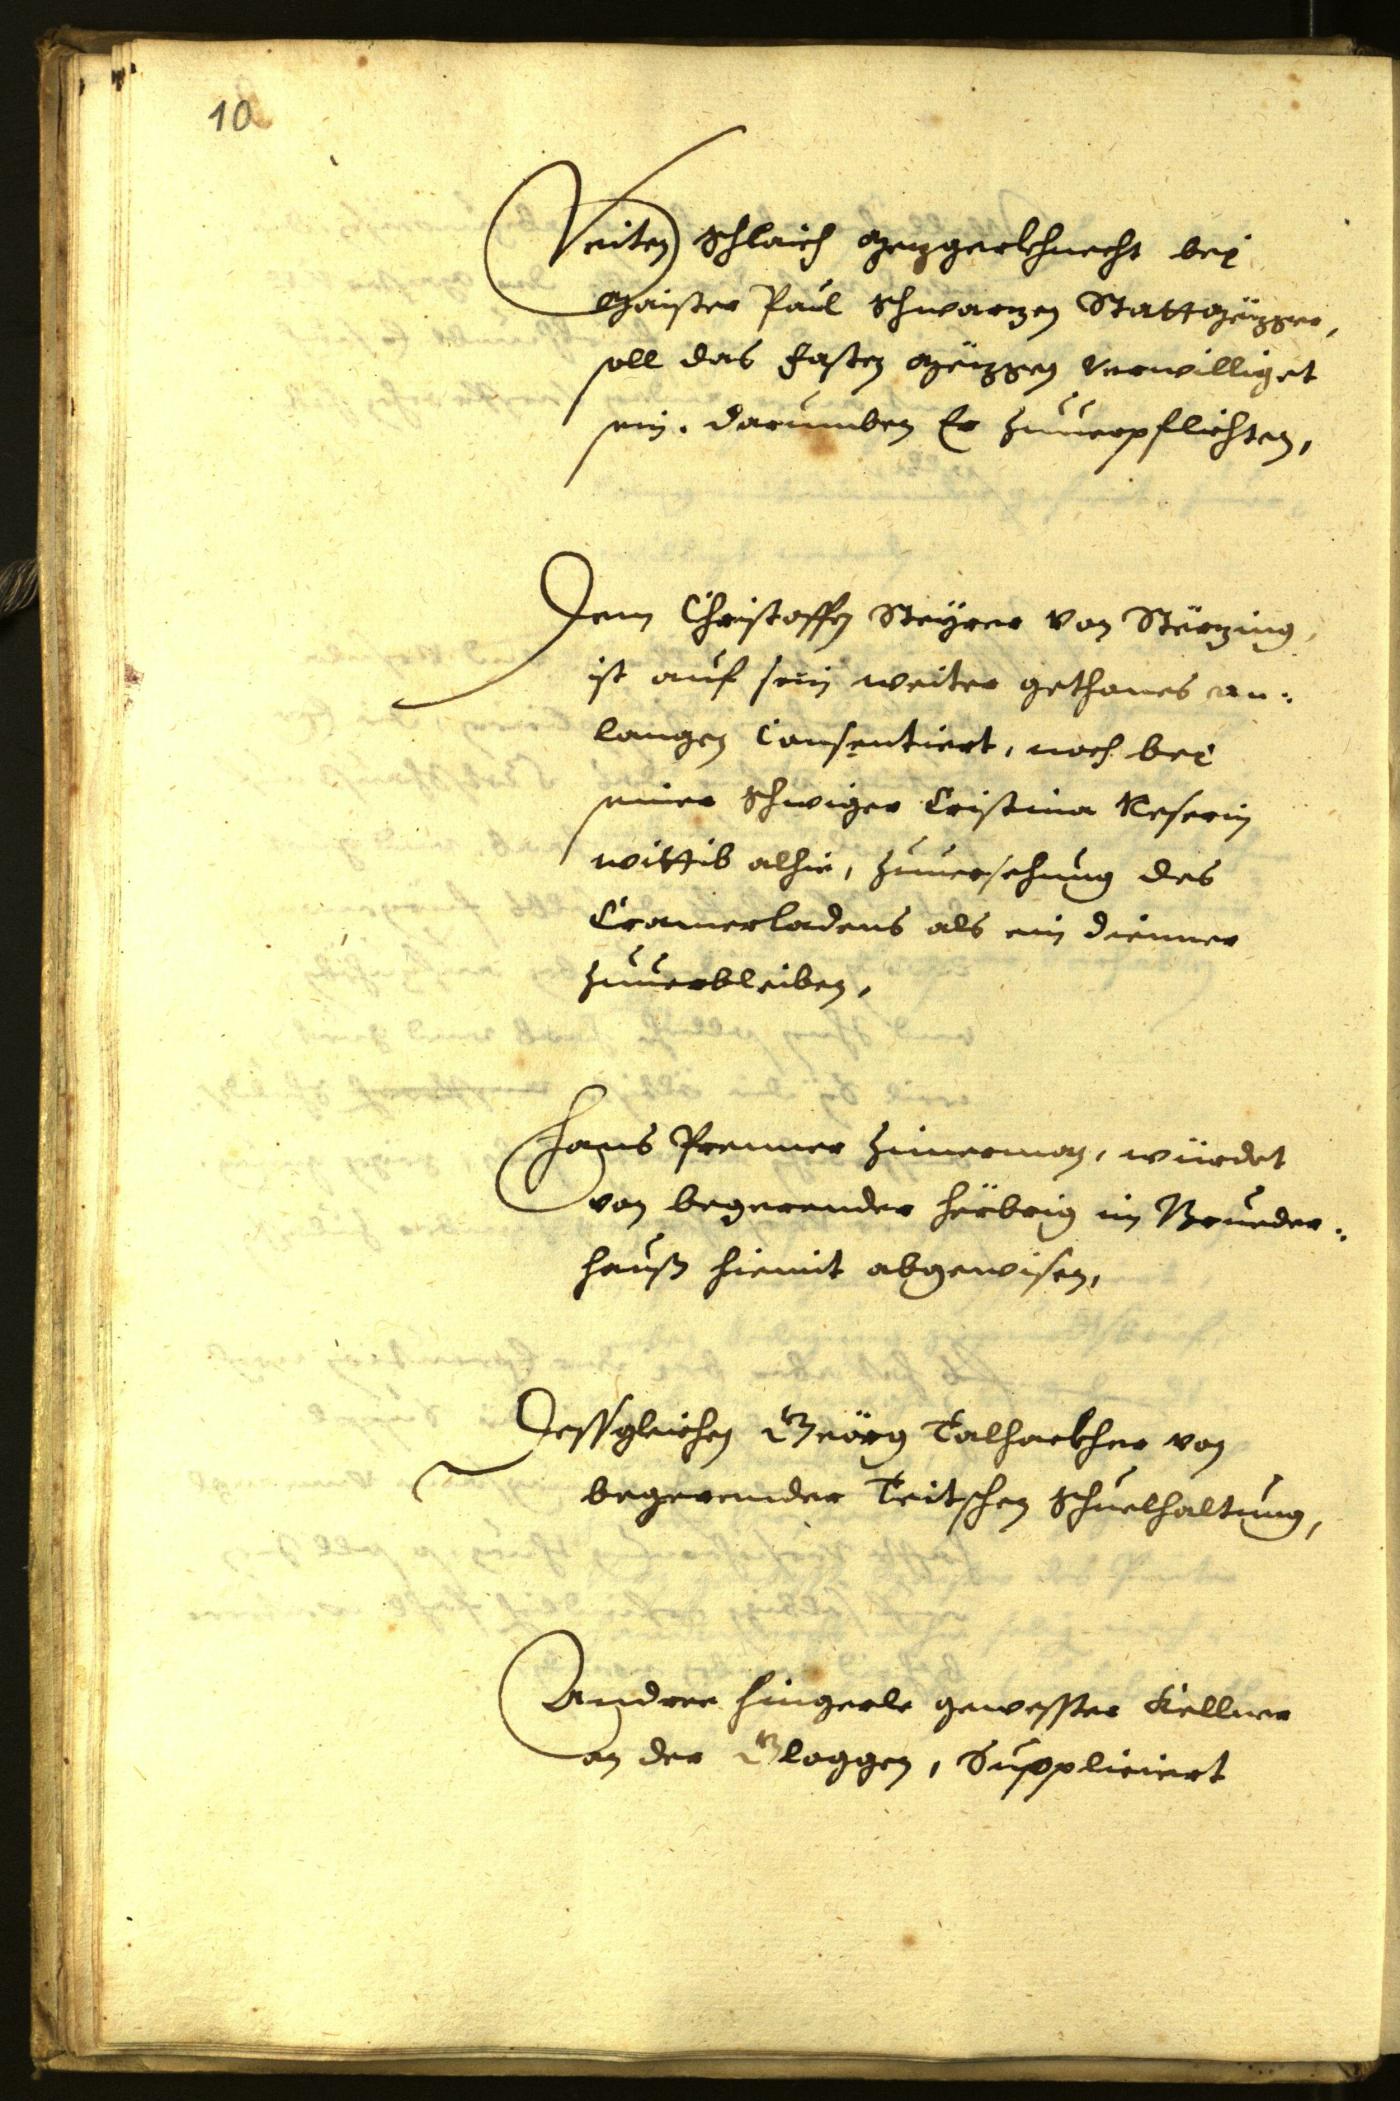 10
Veiten Schlaich Mezgerkhnecht bei
Maister Paul Schwarzen Stattmëzger,
soll das Fasten mëzgen verwilliget
sein. darumben Er zuuerpflichten,
Dem Christoffen Steÿrer von Störzing,
ist auf sein weiter gethanes an-
langen Consentiert, noch bei
seiner Schwiger Cristina
wittib alhie, zuuersehung des
Cramerladens als ein dienner
zuuerbleiben,
Hans Prenner Zimerman, würdet
von begerender Hërbrig im Brueder-
hauß hiemit abgewisen,
Dessgleichen Geörg Talhackher von
begerender Teitschen Schuelhaltung,
Andree Hingerle gewesster Kellner
an der Gloggen, Suppliciert